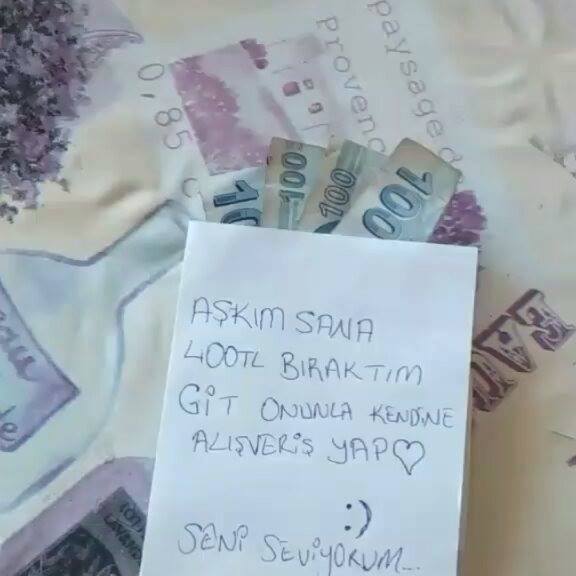 paysage d
provenc
0,85
100
100
100
AŞKIM SANA
400TL BIRAKTIM
GİT ONUNLA KENDİNE
ALIŞVERİŞ YAP♡
:)
SENİ SEVİYORUM...